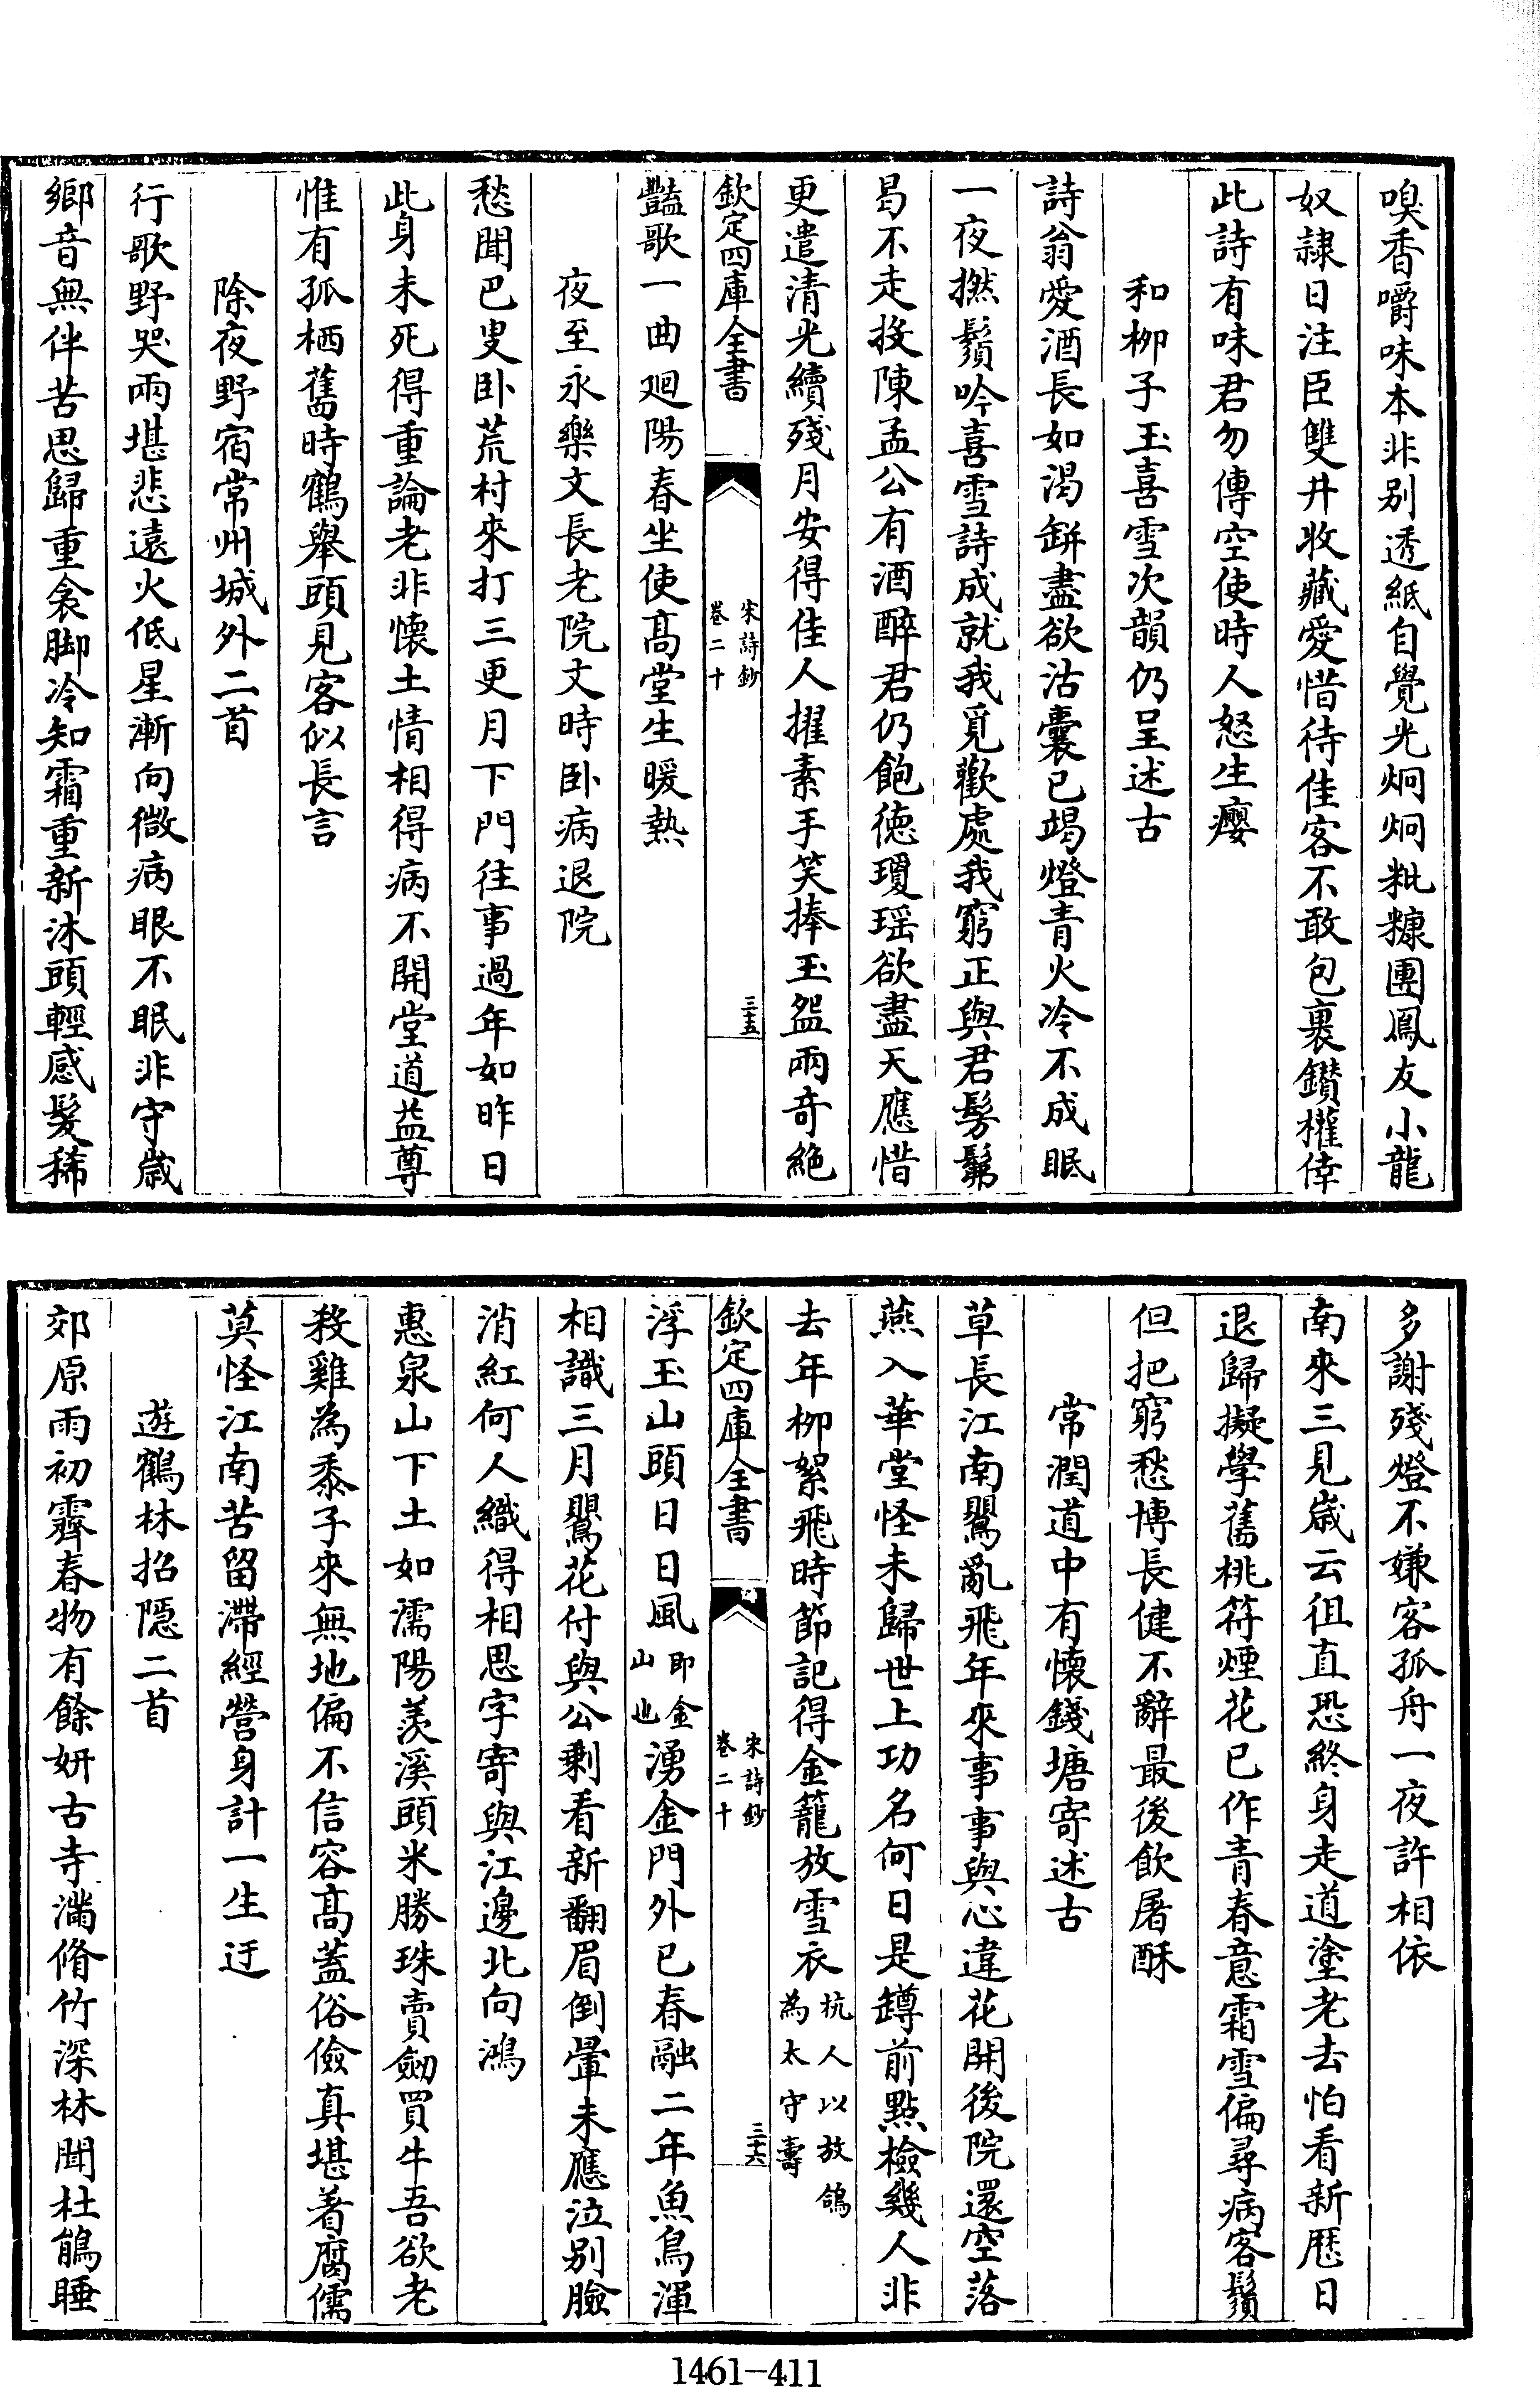 嗅香嚼味本非别透紙自覺光炯炯粃糠團鳳友小龍
奴隷日注臣雙井收藏愛惜待佳客不敢包裹鑽權倖
此詩有味君勿傳空使時人怒生癭
和柳子玉喜雪次韻仍呈述古
詩翁愛酒長如渴缾盡欲沽囊已竭燈青火冷不成眠
一夜撚鬚吟喜雪詩成就我覓歡處我窮正與君髣髴
曷不走投陳孟公有酒醉君仍飽徳瓊瑶欲盡天應惜
更遣清光續殘月安得佳人擢素手笑捧玉盌兩竒絶
欽定四庫全書
宋詩鈔
卷二十
三十五
豔歌一曲廻陽春坐使髙堂生暖熱
夜至永樂文長老院文時卧病退院
愁聞巴叟卧荒村來打三更月下門往事過年如昨日
此身未死得重論老非懐土情相得病不開堂道益尊
惟有孤栖舊時鶴舉頭見客似長言
除夜野宿常州城外二首
行歌野哭兩堪悲遠火低星漸向微病眼不眠非守歳
鄉音無伴苦思歸重衾脚冷知霜重新沐頭輕感髮稀
多謝殘燈不嫌客孤舟一夜許相依
南來三見歳云徂直恐終身走道塗老去怕看新厯日
退歸擬學舊桃符煙花已作青春意霜雪偏尋病客鬚
但把窮愁博長健不辭最後飲屠酥
常潤道中有懐錢塘寄述古
草長江南鸎亂飛年來事事與心違花開後院還空落
燕入華堂怪未歸世上功名何日是罇前點檢幾人非
去年柳絮飛時節記得金籠放雪衣杭人以放鴿為太守夀
欽定四庫全書
宋詩鈔
卷二十
三十六
浮玉山頭日日風即金山也湧金門外已春融二年魚鳥渾
相識三月鸎花付與公剰看新翻眉倒暈未應泣别臉
消紅何人織得相思字寄與江邊北向鴻
惠泉山下土如濡陽羨溪頭米勝珠賣劒買牛吾欲老
殺雞為黍子來無地偏不信容髙蓋俗儉真堪着腐儒
莫怪江南苦留滯經營身計一生迂
遊鶴林招隠二首
郊原雨初霽春物有餘妍古寺滿脩竹深林聞杜鵑睡
1461-411